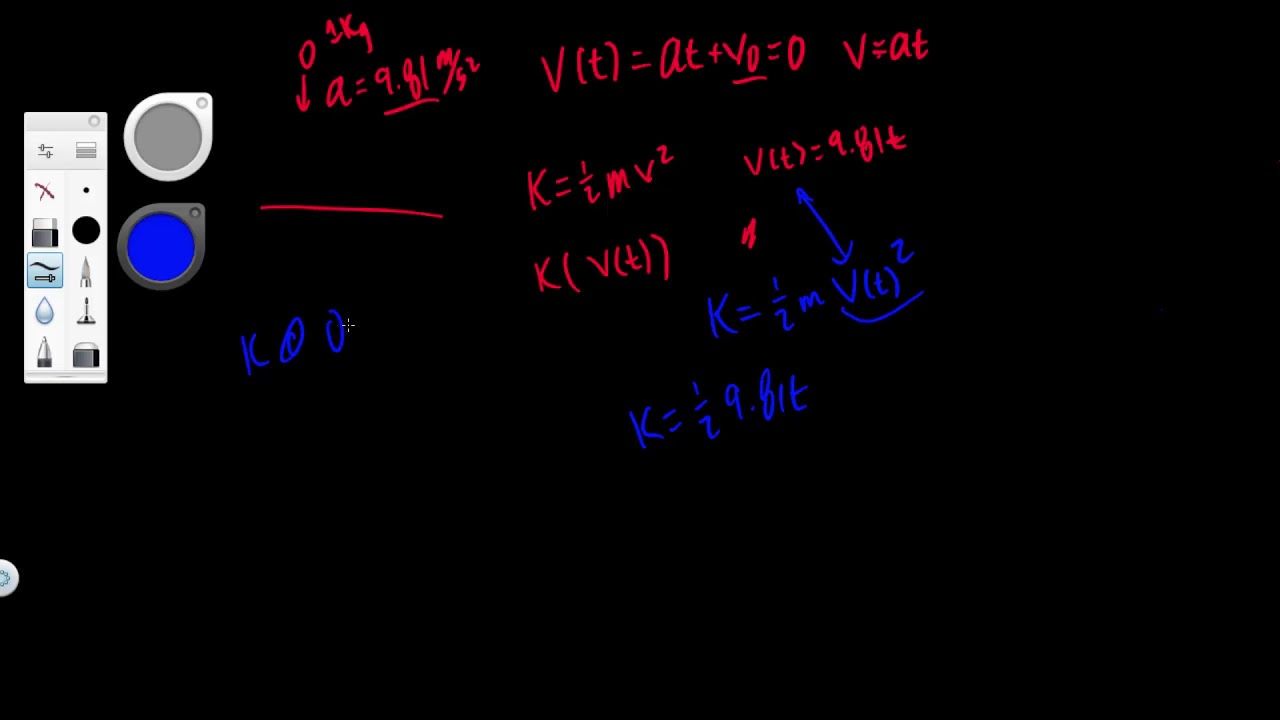 0 1Kg
a = 9.81 m/s²
V(t) = at + v₀ = 0 V = at
K = ½ m v²
V(t) = 9.81t
K( V(t))
K = ½ m V(t)²
K 0 0
K = ½ 9.81t